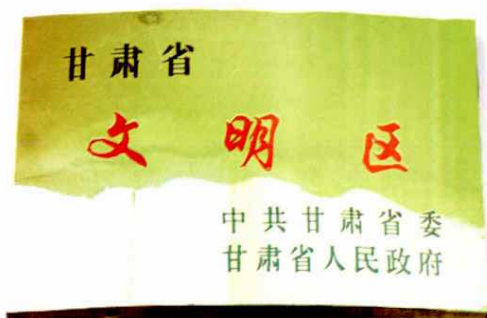 甘肃省
文明区
中共甘肃省委
甘肃省人民政府